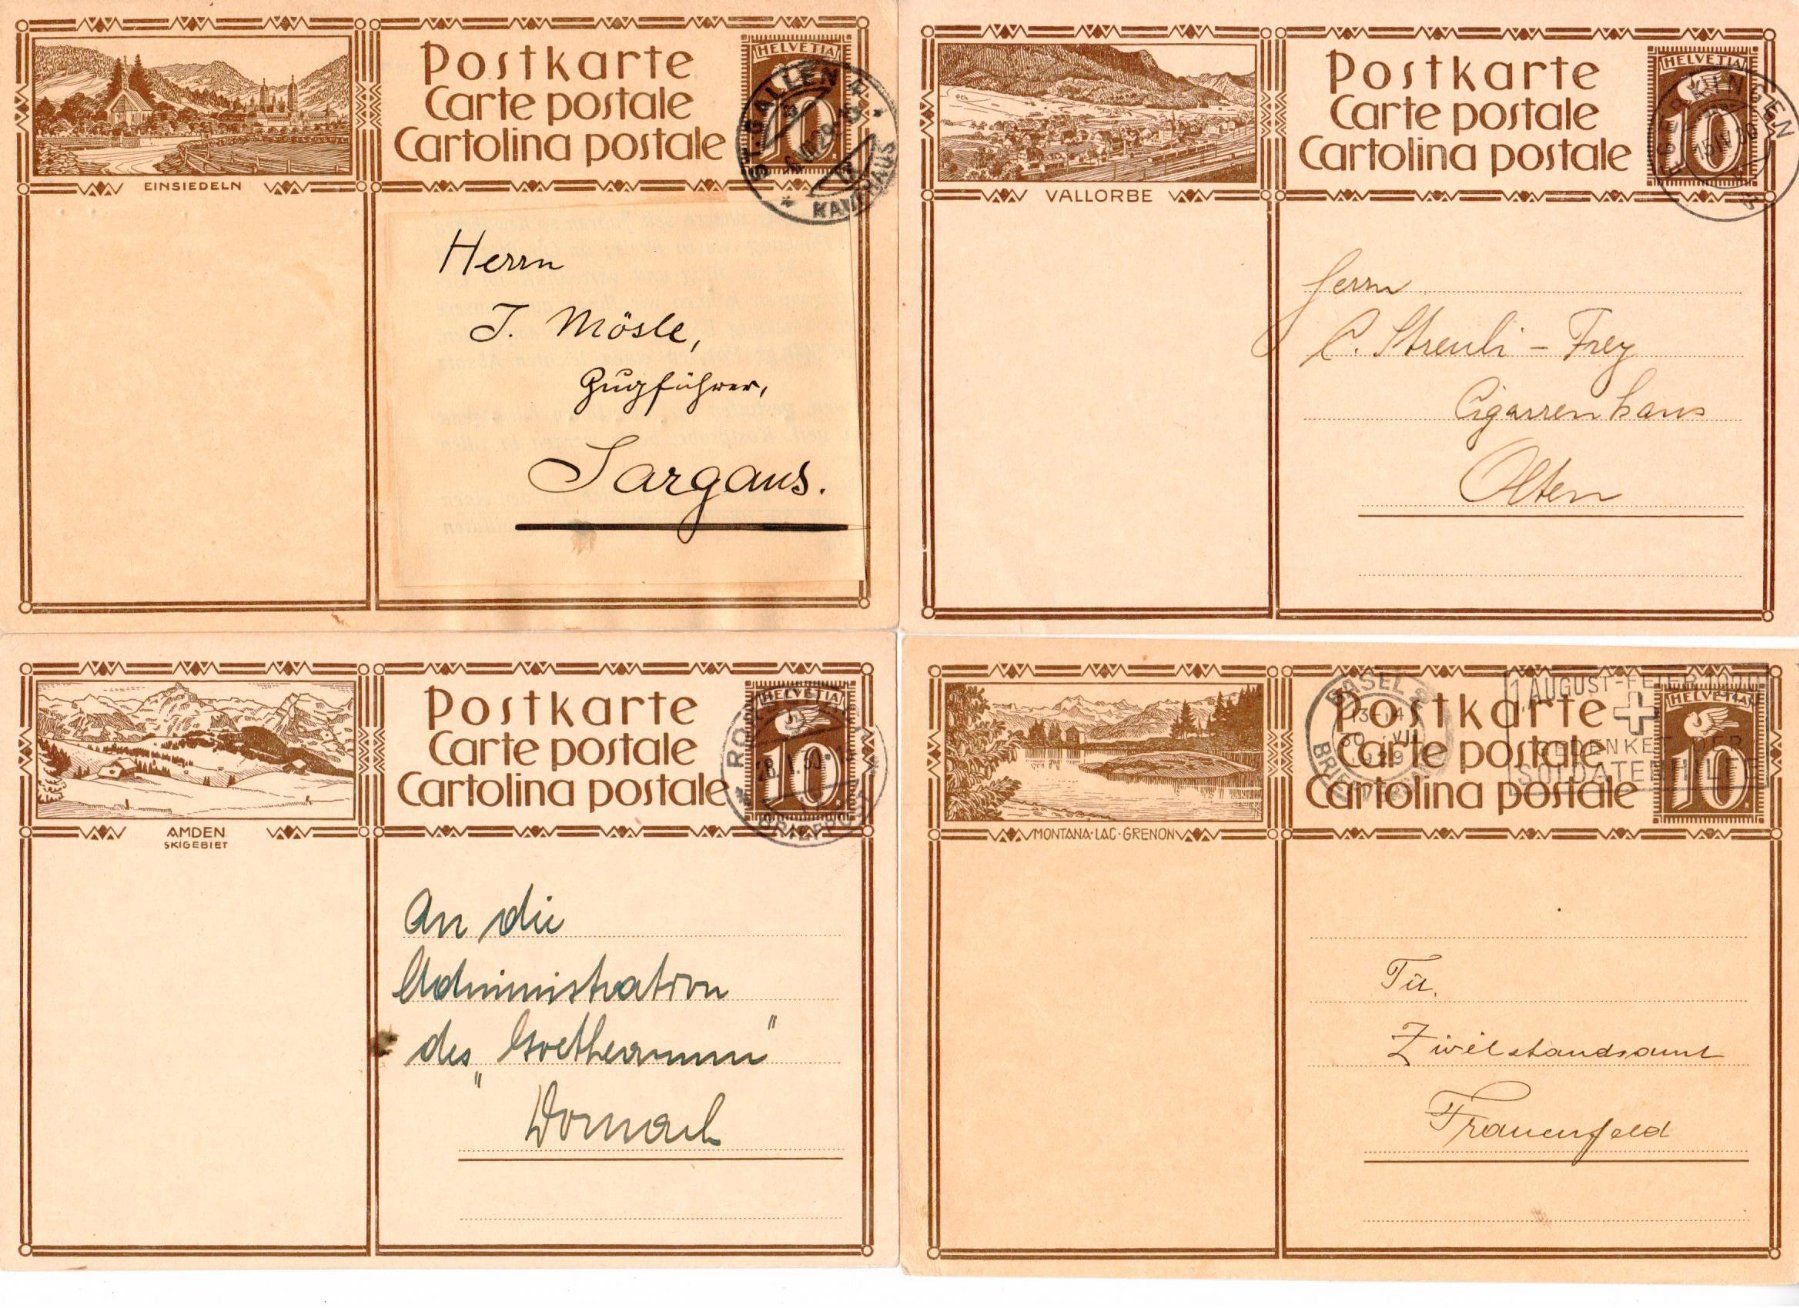 Postkarte
Carte postale
Cartolina postale
HELVETIA
10
ST. GALLEN
KAUFHAUS
EINSIEDELN
Herrn
J. Mösle,
Zugführer,
Sargans.
Postkarte
Carte postale
Cartolina postale
HELVETIA
10
EGERKINGEN
15.IV.30
VALLORBE
Herrn
C. Streuli - Frey
Cigarrenhaus
Olten
Postkarte
Carte postale
Cartolina postale
HELVETIA
10
28.I.30.
BRIEFPOST
AMDEN
SKIGEBIET
An die
Administration
des "Goetheanum"
Dornach
Postkarte
Carte postale
Cartolina postale
HELVETIA
10
BASEL
30.VII
1929
1. AUGUST-FEIER
GEDENKET DER
SOLDATENHILFE
MONTANA-LAC-GRENON
Tit.
Zivilstandsamt
Frauenfeld